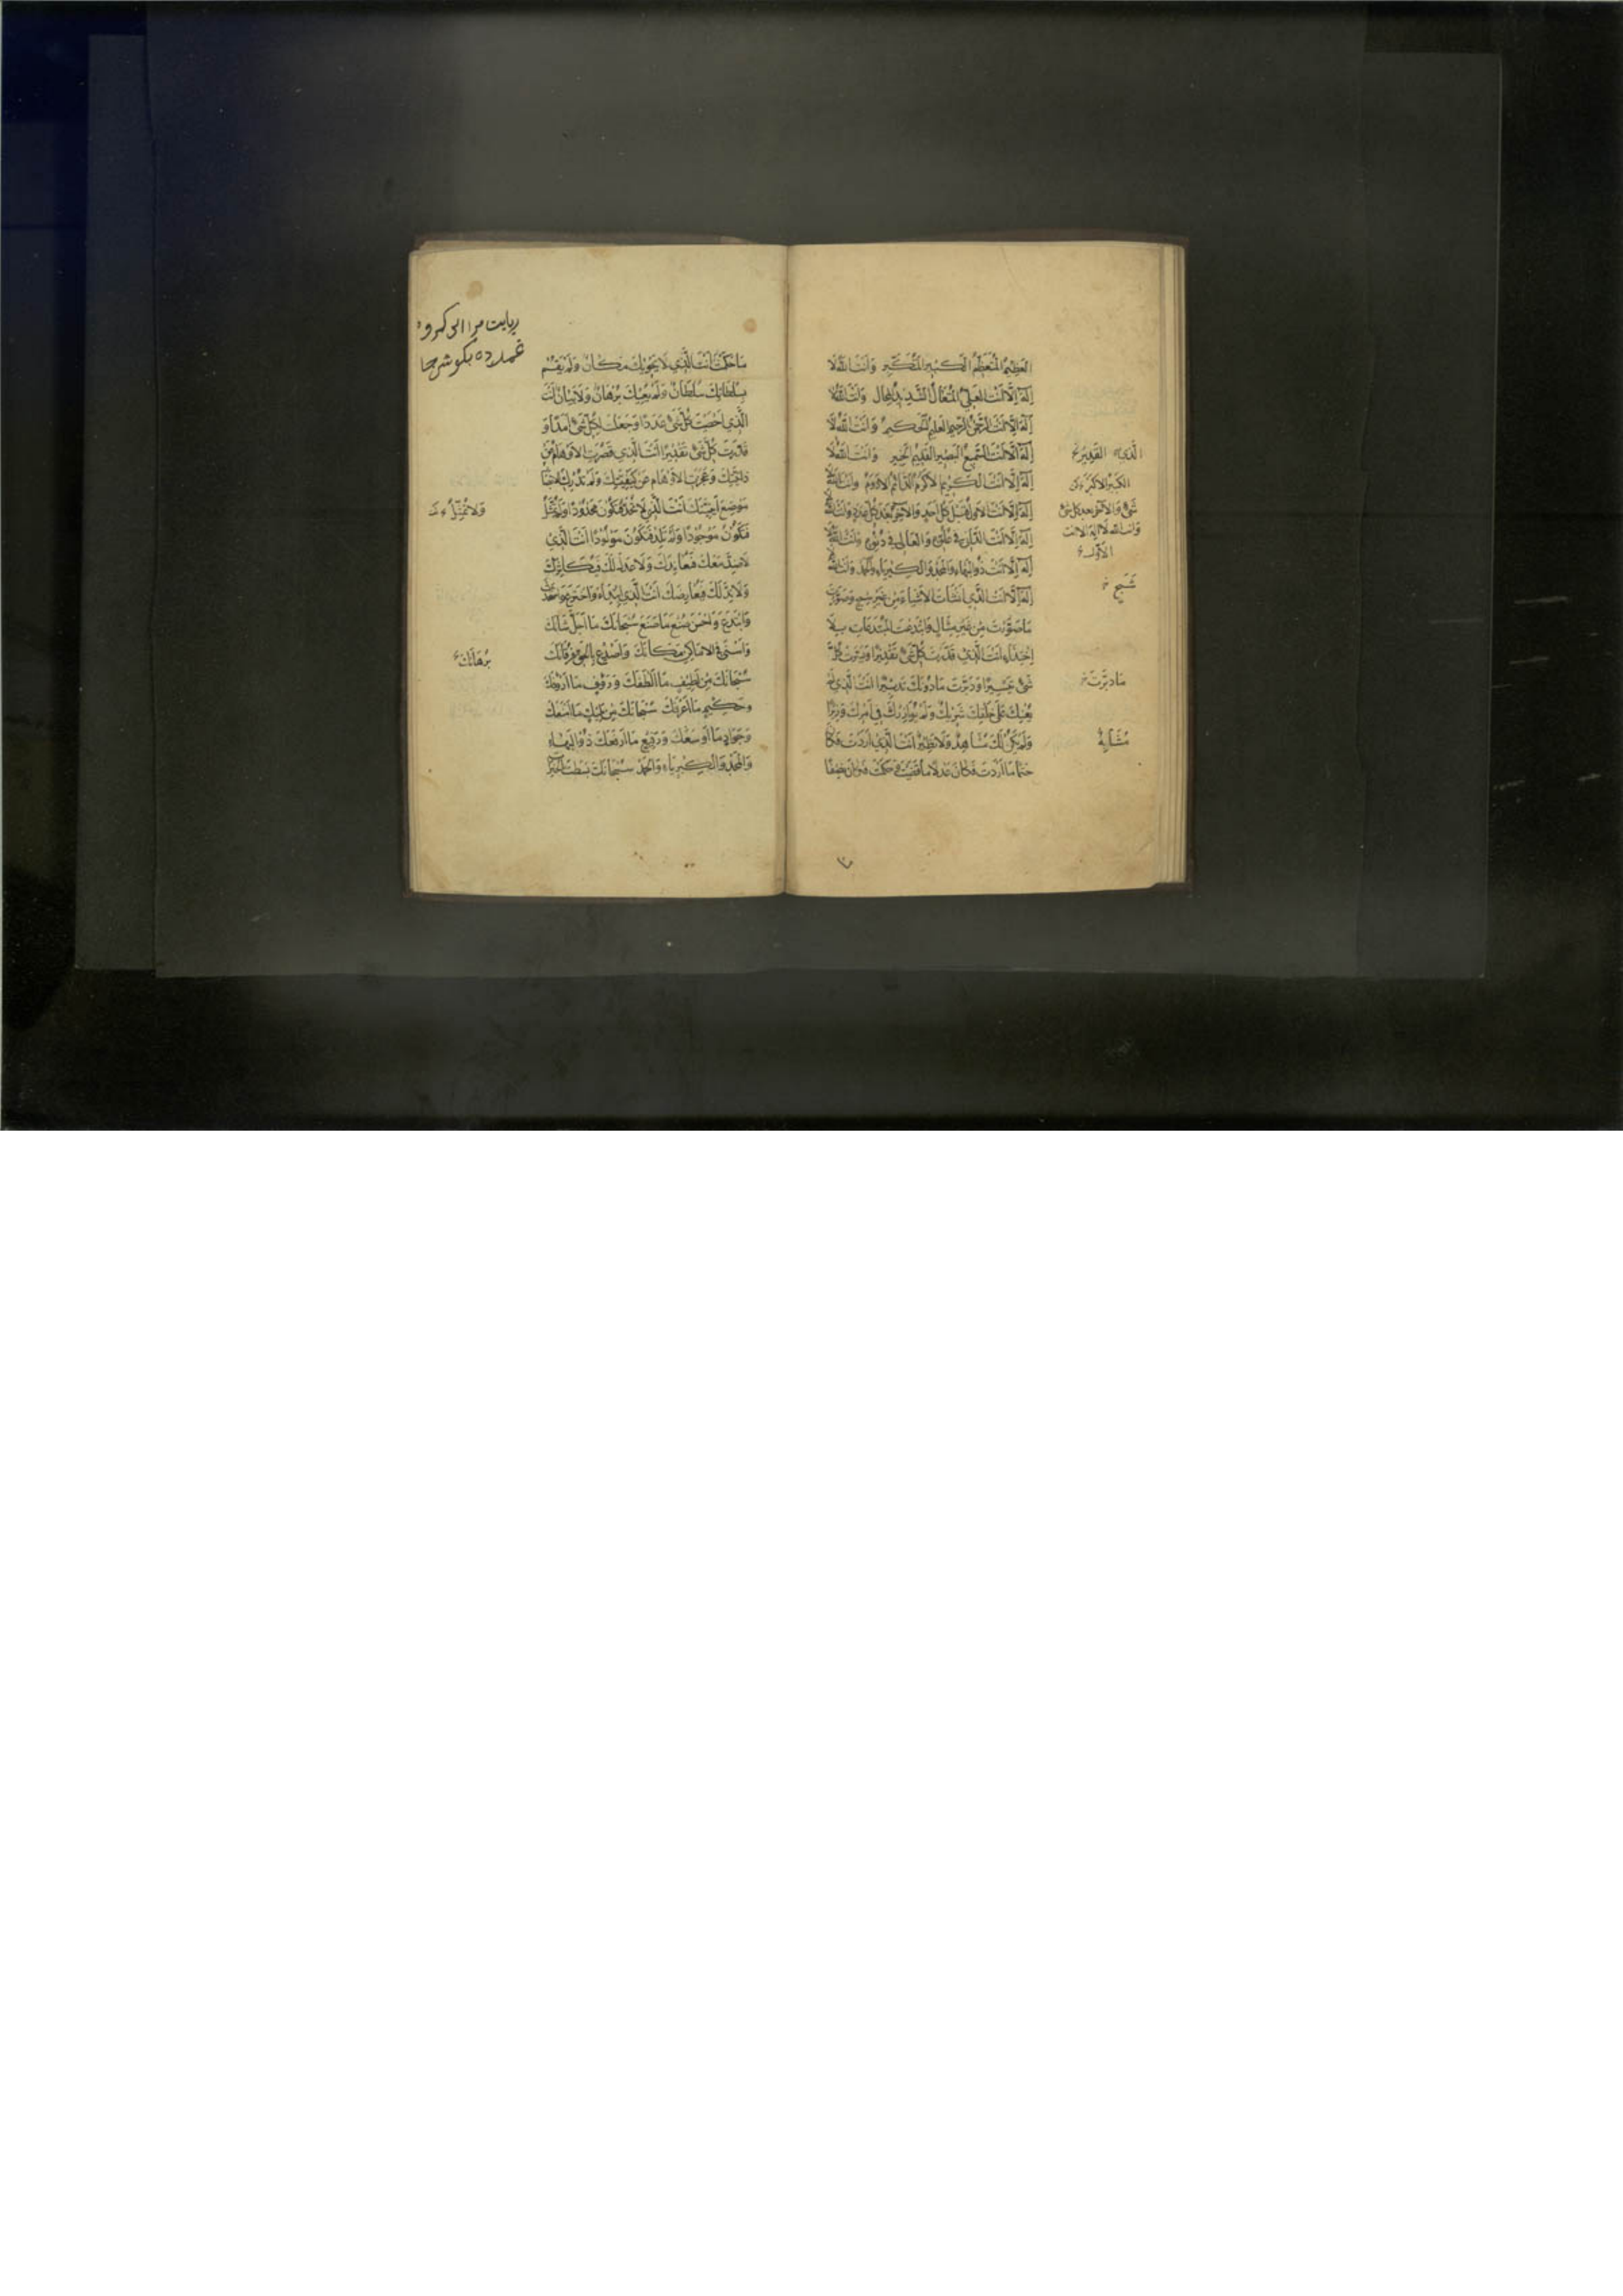 العَظِيمُ المُتَعَظِّمُ الكَبِيرُ المُتَكَبِّرُ وَأَنْتَ اللهُ لَا
إِلَهَ إِلَّا أَنْتَ العَلِيُّ المُتَعَالُ الشَّدِيدُ المِحَالِ وَأَنْتَ اللهُ لَا
إِلَهَ إِلَّا أَنْتَ الرَّحْمَنُ الرَّحِيمُ العَلِيمُ الحَكِيمُ وَأَنْتَ اللهُ لَا
إِلَهَ إِلَّا أَنْتَ السَّمِيعُ البَصِيرُ القَدِيمُ الخَبِيرُ وَأَنْتَ اللهُ لَا
إِلَهَ إِلَّا أَنْتَ الكَرِيمُ الأَكْرَمُ الدَّائِمُ الأَدْوَمُ وَأَنْتَ اللهُ لَا
إِلَهَ إِلَّا أَنْتَ الأَوَّلُ قَبْلَ كُلِّ أَحَدٍ وَالآخِرُ بَعْدَ كُلِّ عَدَدٍ وَأَنْتَ اللهُ لَا
إِلَهَ إِلَّا أَنْتَ الدَّانِي فِي عُلُوِّهِ وَالعَالِي فِي دُنُوِّهِ وَأَنْتَ اللهُ لَا
إِلَهَ إِلَّا أَنْتَ ذُو البَهَاءِ وَالمَجْدِ وَالكِبْرِيَاءِ وَالحَمْدِ وَأَنْتَ اللهُ لَا
إِلَهَ إِلَّا أَنْتَ الَّذِي أَنْشَأْتَ الأَشْيَاءَ مِنْ غَيْرِ سِنْخٍ وَصَوَّرْتَ
مَا صَوَّرْتَ مِنْ غَيْرِ مِثَالٍ وَابْتَدَعْتَ المُبْتَدَعَاتِ بِلَا
احْتِذَاءٍ أَنْتَ الَّذِي قَدَّرْتَ كُلَّ شَيْءٍ تَقْدِيرًا وَيَسَّرْتَ كُلَّ
شَيْءٍ تَيْسِيرًا وَدَبَّرْتَ مَا دُونَكَ تَدْبِيرًا أَنْتَ الَّذِي لَمْ
يُعِنْكَ عَلَى خَلْقِكَ شَرِيكٌ وَلَمْ يُوَازِرْكَ فِي أَمْرِكَ وَزِيرٌ
وَلَمْ يَكُنْ لَكَ مُشَاهِدٌ وَلَا نَظِيرٌ أَنْتَ الَّذِي أَرَدْتَ فَكَانَ
حَتْمًا مَا أَرَدْتَ فَكَانَ عَدْلًا مَا قَضَيْتَ وَحَكَمْتَ فَكَانَ نِصْفًا
الَّذِي القَدِيرُ
الكَبِيرُ الأَكْبَرُ
شَيْءٍ وَالآخِرُ بَعْدَ كُلِّ شَيْءٍ
وَأَنْتَ اللهُ لَا إِلَهَ إِلَّا أَنْتَ
الأَوَّلُ
شَبَحٍ
مَا دَبَّرْتَ
مُشَابِهٌ
مَا حَكَمْتَ أَنْتَ الَّذِي لَا يَحْوِيكَ مَكَانٌ وَلَمْ يَقُمْ
بِسُلْطَانِكَ سُلْطَانٌ وَلَمْ يُعْيِكَ بُرْهَانٌ وَلَا بَيَانٌ أَنْتَ
الَّذِي أَحْصَيْتَ كُلَّ شَيْءٍ عَدَدًا وَجَعَلْتَ لِكُلِّ شَيْءٍ أَمَدًا وَ
قَدَّرْتَ كُلَّ شَيْءٍ تَقْدِيرًا أَنْتَ الَّذِي قَصُرَتِ الأَوْهَامُ عَنْ
ذَاتِيَّتِكَ وَعَجَزَتِ الأَفْهَامُ عَنْ كَيْفِيَّتِكَ وَلَمْ تُدْرِكِ الأَبْصَارُ
مَوْضِعَ أَيْنِيَّتِكَ أَنْتَ الَّذِي لَا تُحَدُّ فَتَكُونَ مَحْدُودًا وَلَمْ تُمَثَّلْ
فَتَكُونَ مَوْجُودًا وَلَمْ تَلِدْ فَتَكُونَ مَوْلُودًا أَنْتَ الَّذِي
لَا ضِدَّ مَعَكَ فَيُعَانِدَكَ وَلَا عِدْلَ لَكَ فَيُكَاثِرَكَ
وَلَا نِدَّ لَكَ فَيُعَارِضَكَ أَنْتَ الَّذِي ابْتَدَأَ وَاخْتَرَعَ وَاسْتَحْدَثَ
وَابْتَدَعَ وَأَحْسَنَ صُنْعَ مَا صَنَعَ سُبْحَانَكَ مَا أَجَلَّ شَأْنَكَ
وَأَسْنَى فِي الأَمَاكِنِ مَكَانَكَ وَأَصْدَعَ بِالحَقِّ فُرْقَانَكَ
سُبْحَانَكَ مِنْ لَطِيفٍ مَا أَلْطَفَكَ وَرَؤُوفٍ مَا أَرْأَفَكَ
وَحَكِيمٍ مَا أَعْرَفَكَ سُبْحَانَكَ مِنْ مَلِيكٍ مَا أَمْنَعَكَ
وَجَوَادٍ مَا أَوْسَعَكَ وَرَفِيعٍ مَا أَرْفَعَكَ ذُو البَهَاءِ
وَالمَجْدِ وَالكِبْرِيَاءِ وَالحَمْدِ سُبْحَانَكَ بَسَطْتَ بِالخَيْرَاتِ
وَلَا تُمَثَّلُ
بُرْهَانَكَ